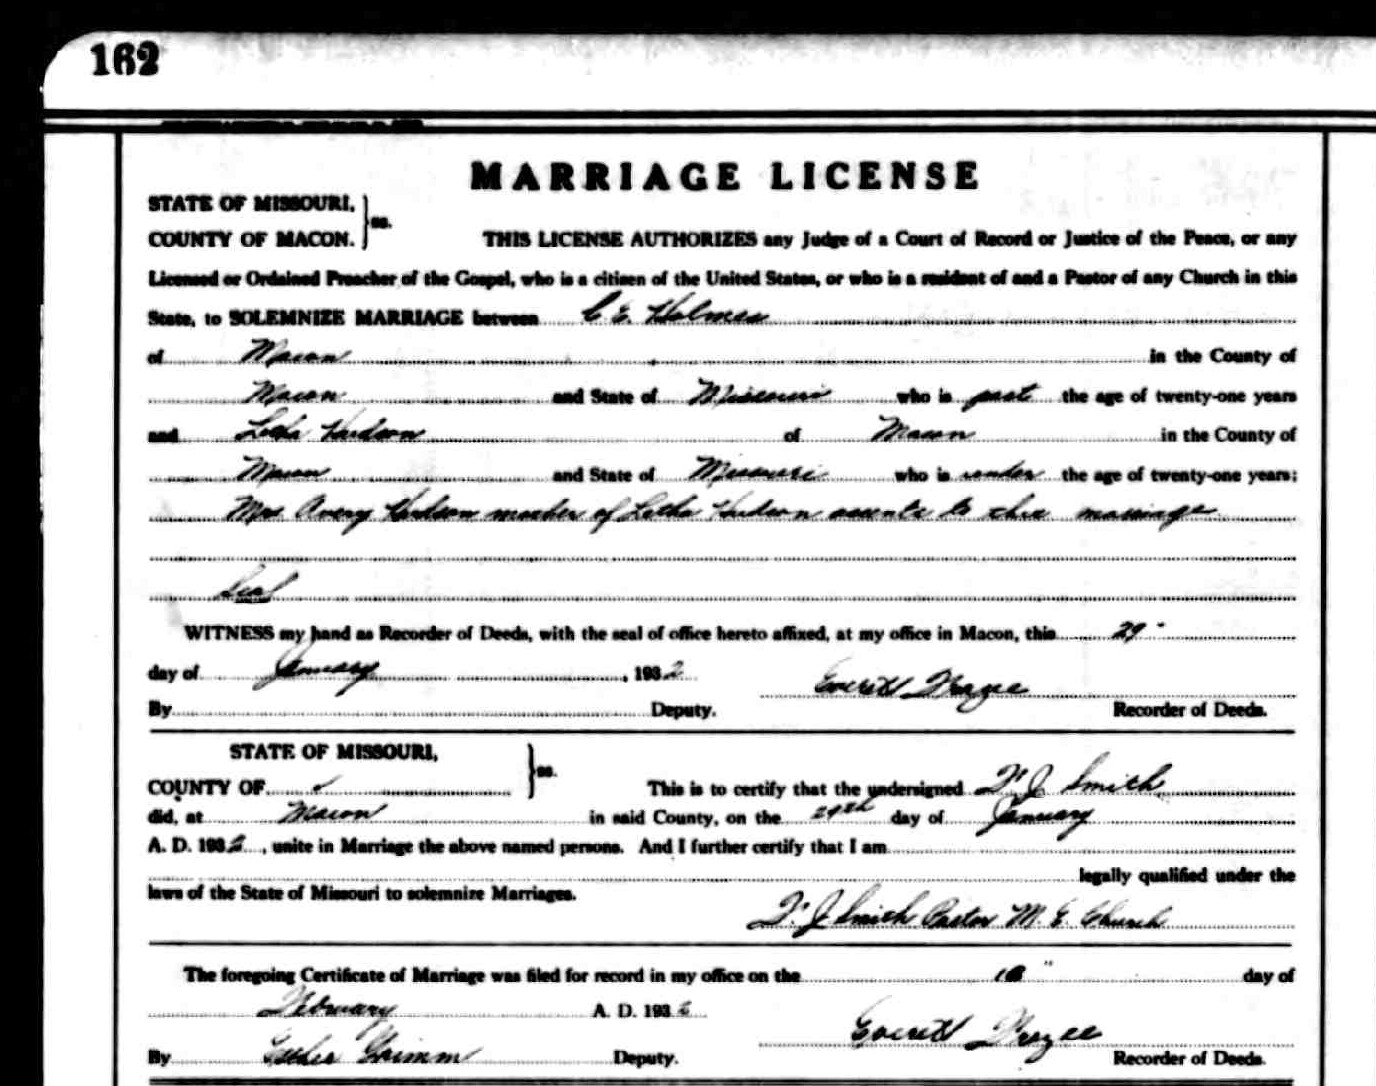 162
MARRIAGE LICENSE
STATE OF MISSOURI,
COUNTY OF MACON. } ss.
THIS LICENSE AUTHORIZES any Judge of a Court of Record or Justice of the Peace, or any
Licensed or Ordained Preacher of the Gospel, who is a citizen of the United States, or who is a resident of and a Pastor of any Church in this
State, to SOLEMNIZE MARRIAGE between C. E. Holmes
of Macon in the County of
Macon and State of Missouri who is past the age of twenty-one years
and Letha Hudson of Macon in the County of
Macon and State of Missouri who is under the age of twenty-one years;
Mrs Avery Hudson mother of Letha Hudson assents to this marriage
Seal
WITNESS my hand as Recorder of Deeds, with the seal of office hereto affixed, at my office in Macon, this 29"
day of January, 1932
Everett
By Deputy. Recorder of Deeds.
STATE OF MISSOURI,
COUNTY OF } ss. This is to certify that the undersigned J Smith
did, at Macon in said County, on the 29th day of January
A. D. 1932, unite in Marriage the above named persons. And I further certify that I am
legally qualified under the
laws of the State of Missouri to solemnize Marriages.
J Smith Pastor M. E. Church
The foregoing Certificate of Marriage was filed for record in my office on the day of
February A. D. 1932
Everett
By Esther Grimm Deputy. Recorder of Deeds.